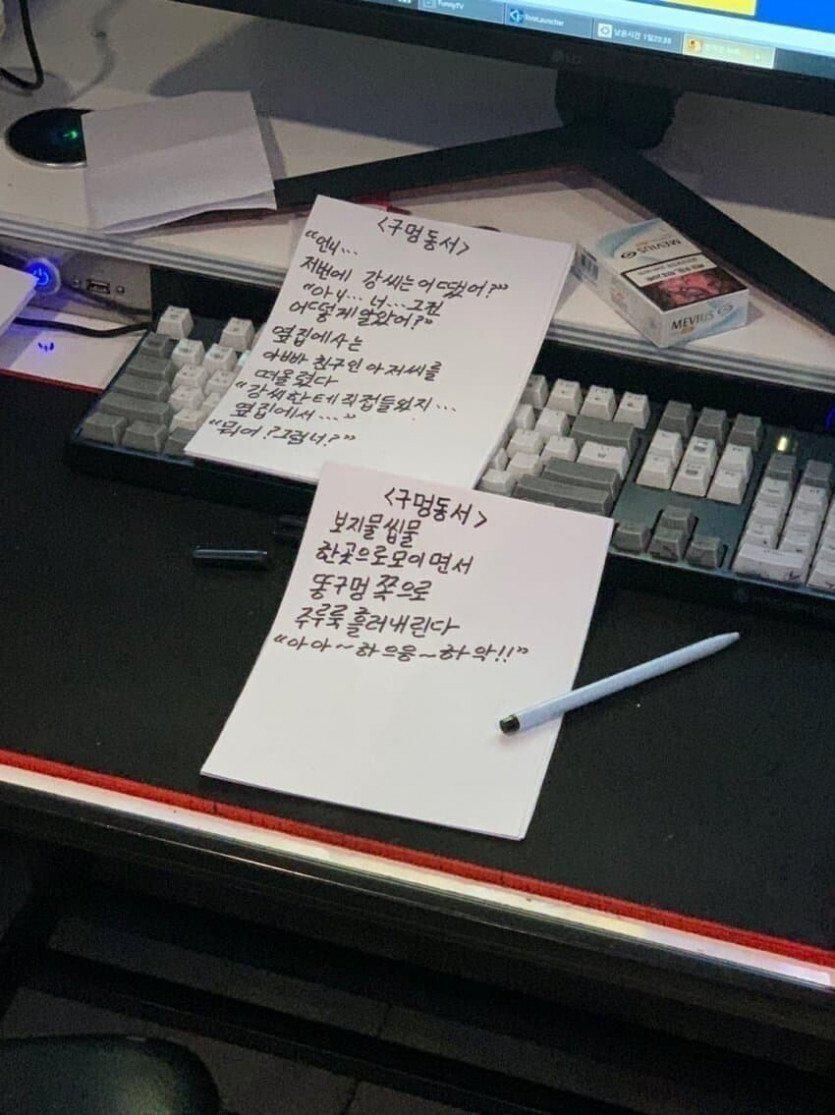 FunnyTV
<구멍동서>
"언니...
저번에 강씨는 어땠어?"
"아니... 너... 그건
어떻게 알았어?"
옆집에 사는
아빠 친구인 아저씨를
떠올렸다
"강씨한테 직접들었지...
옆집에서..."
"뭐어? 그럼 너?"
MEVIUS
MEVIUS
<구멍동서>
보지물씹물
한곳으로 모이면서
똥구멍 쪽으로
주루룩 흘러내린다
"아아~하으응~하악!!"